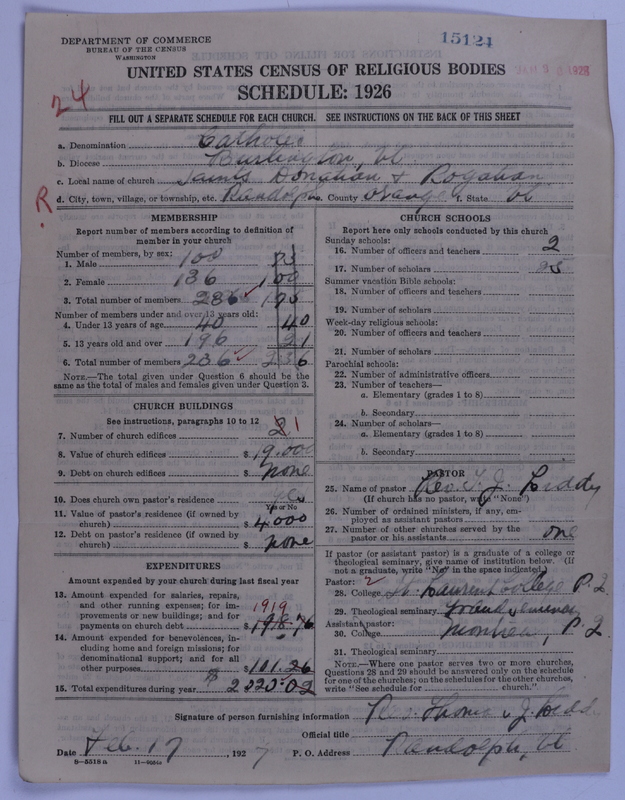 DEPARTMENT OF COMMERCE
BUREAU OF THE CENSUS
WASHINGTON
15121
1928
UNITED STATES CENSUS OF RELIGIOUS BODIES
SCHEDULE: 1926
24
FILL OUT A SEPARATE SCHEDULE FOR EACH CHURCH. SEE INSTRUCTIONS ON THE BACK OF THIS SHEET
a. Denomination Catholic
b. Diocese Burlington, Vt.
c. Local name of church Saints Donatian & Rogatian
d. City, town, village, or township, etc. Randolph e. County Orange f. State Vt
R
MEMBERSHIP
Report number of members according to definition of
member in your church
Number of members, by sex:
1. Male 100
2. Female 136 100
3. Total number of members 236
Number of members under and over 13 years old:
4. Under 13 years of age 40 40
5. 13 years old and over 196
6. Total number of members 236 236
NOTE.—The total given under Question 6 should be the
same as the total of males and females given under Question 3.
CHURCH BUILDINGS
See instructions, paragraphs 10 to 12
7. Number of church edifices 2 1
8. Value of church edifices $ 19,000
9. Debt on church edifices $ None
10. Does church own pastor's residence yes
Yes or No
11. Value of pastor's residence (if owned by
church) $ 4000
12. Debt on pastor's residence (if owned by
church) $ none
EXPENDITURES
Amount expended by your church during last fiscal year
13. Amount expended for salaries, repairs,
and other running expenses; for im-
provements or new buildings; and for
payments on church debt $
1919
14. Amount expended for benevolences, in-
cluding home and foreign missions; for
denominational support; and for all
other purposes $ 101.26
15. Total expenditures during year 2020.02
CHURCH SCHOOLS
Report here only schools conducted by this church
Sunday schools:
16. Number of officers and teachers 2
17. Number of scholars
Summer vacation Bible schools:
18. Number of officers and teachers
19. Number of scholars
Week-day religious schools:
20. Number of officers and teachers
21. Number of scholars
Parochial schools:
22. Number of administrative officers
23. Number of teachers—
a. Elementary (grades 1 to 8)
b. Secondary
24. Number of scholars—
a. Elementary (grades 1 to 8)
b. Secondary
PASTOR
25. Name of pastor Rev. T. J. Liddy
(If church has no pastor, write "None")
26. Number of ordained ministers, if any, em-
ployed as assistant pastors
27. Number of other churches served by the
pastor or his assistants one
If pastor (or assistant pastor) is a graduate of a college or
theological seminary, give name of institution below. (If
not a graduate, write "No" in the space indicated.)
Pastor: 2
28. College St. Laurent College P. Q.
29. Theological seminary Grand Seminary
Assistant pastor:
30. College Montreal, P. Q.
31. Theological seminary
NOTE.—Where one pastor serves two or more churches,
Questions 28 and 29 should be answered only on the schedule
for one of the churches; on the schedules for the other churches,
write "See schedule for church."
Signature of person furnishing information Rev. Thomas J. Liddy
Official title
Date Feb. 17, 1927 P. O. Address Randolph, Vt
8—5518a 11—9654